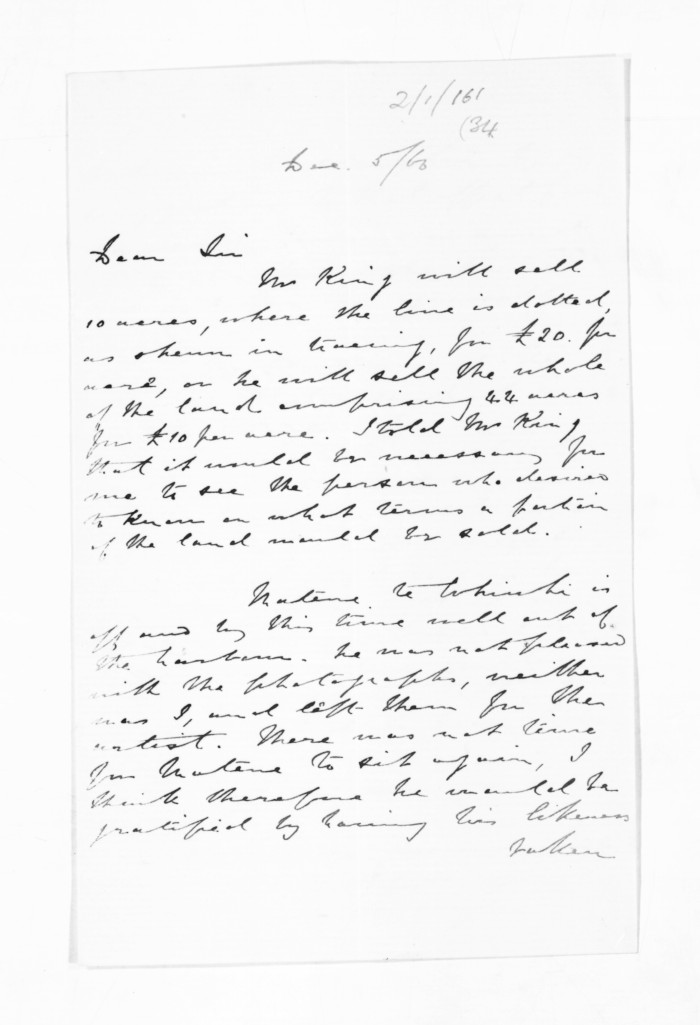 2/1/161
(34
Dec. 5/63
Dear Sir
Mr King will sell
10 acres, where the line is dotted,
as shewn in tracing, for £20. per
acre, or he will sell the whole
of the land comprising 44 acres
for £10 per acre. I told Mr King
that it would be necessary for
me to see the person who desires
to know on what terms a portion
of the land would be sold.
Matene te Whiwhi is
off and by this time well out of
the harbour. he was not pleased
with the photographs, neither
was I, and left them for the
artist. There was not time
for Matene to sit again, I
think therefore he would be
gratified by having his likeness
taken